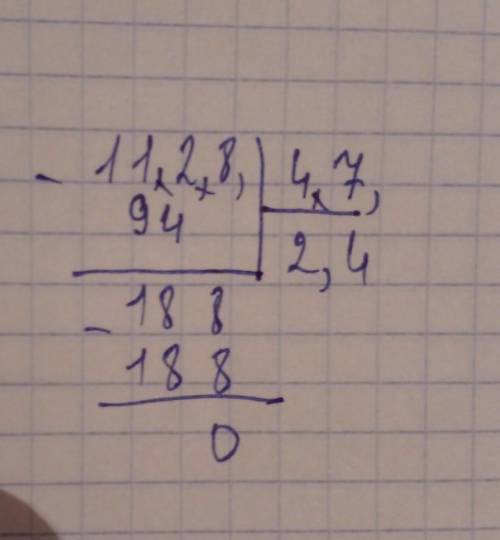 - 11,2,8, | 4,7,
94 | 2,4
- 188
188
0